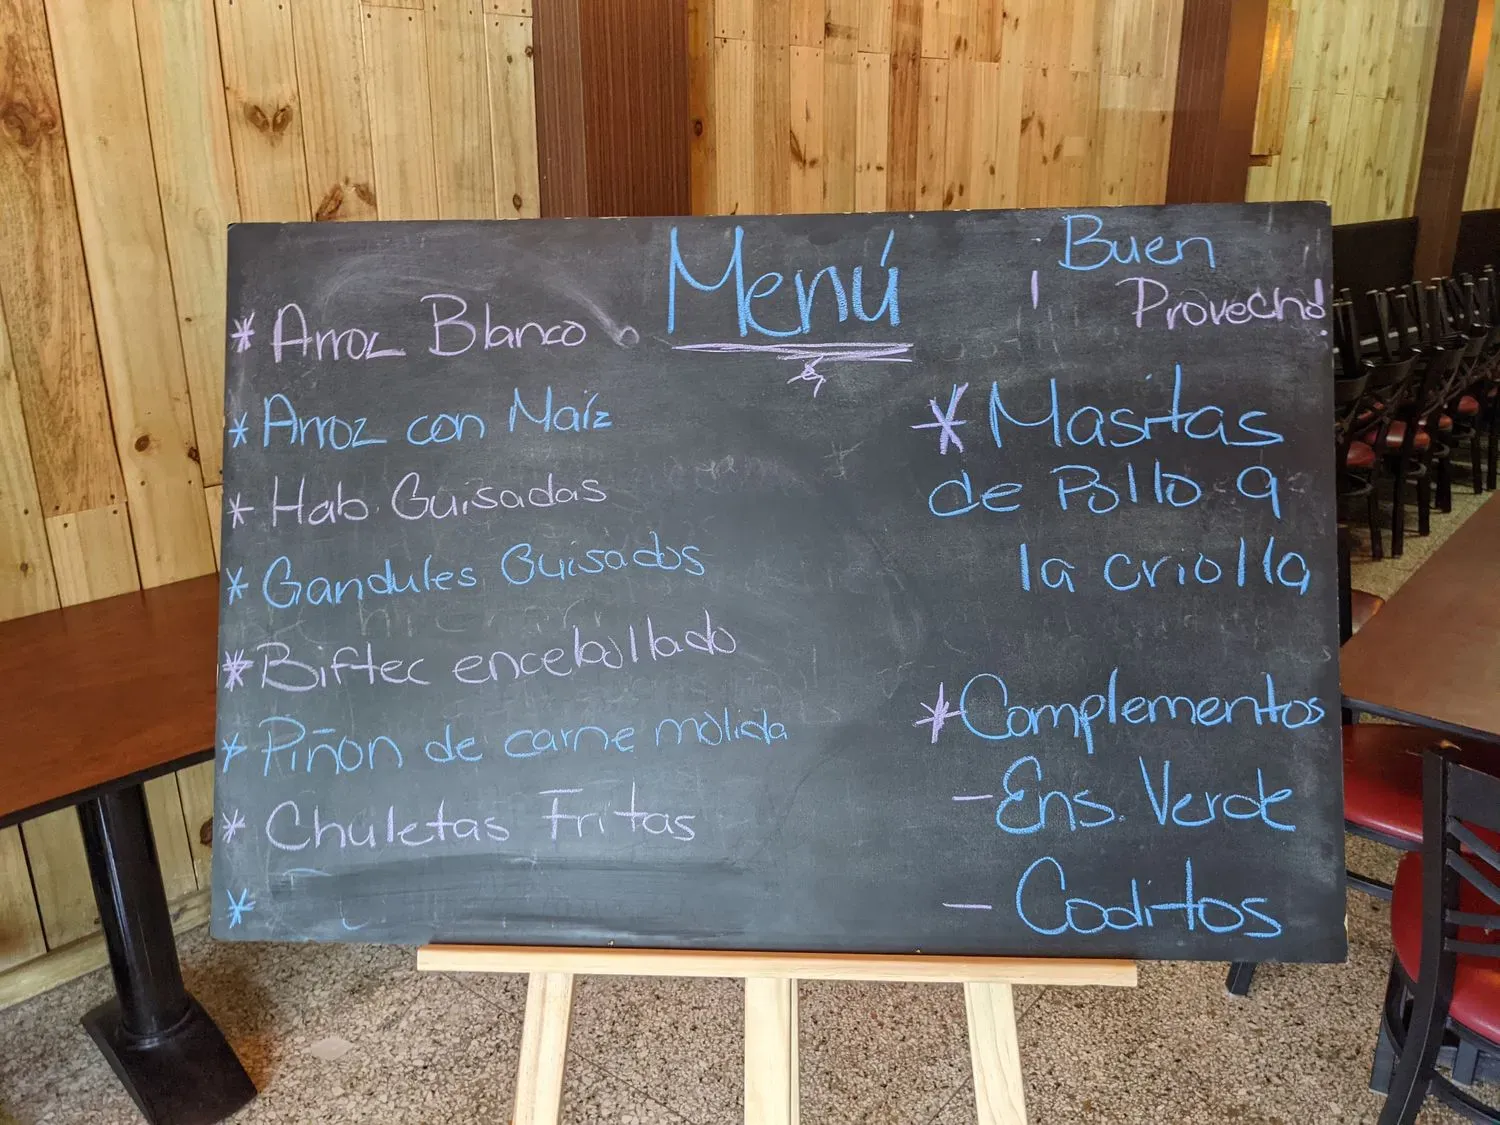 Menú
* Arroz Blanco
* Arroz con Maíz
* Hab. Guisadas
* Gandules Guisados
* Biftec encebollado
* Piñon de carne molida
* Chuletas Fritas
*
¡ Buen
Provecho!
* Masitas
de Pollo a
la criolla
* Complementos
- Ens. Verde
- Coditos